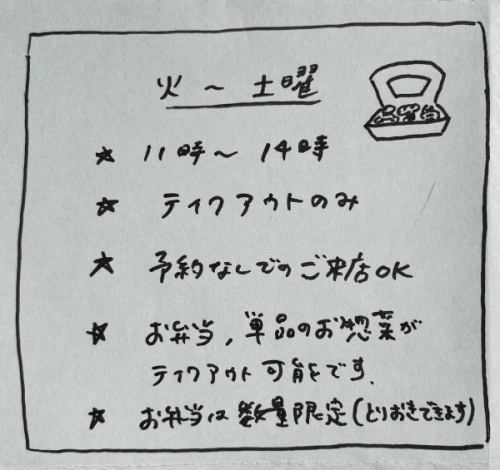 火〜土曜
☆ 11時〜14時
☆ テイクアウトのみ
☆ 予約なしでのご来店OK
☆ お弁当,単品のお惣菜が
テイクアウト可能です.
☆ お弁当は数量限定(とりおきできます)